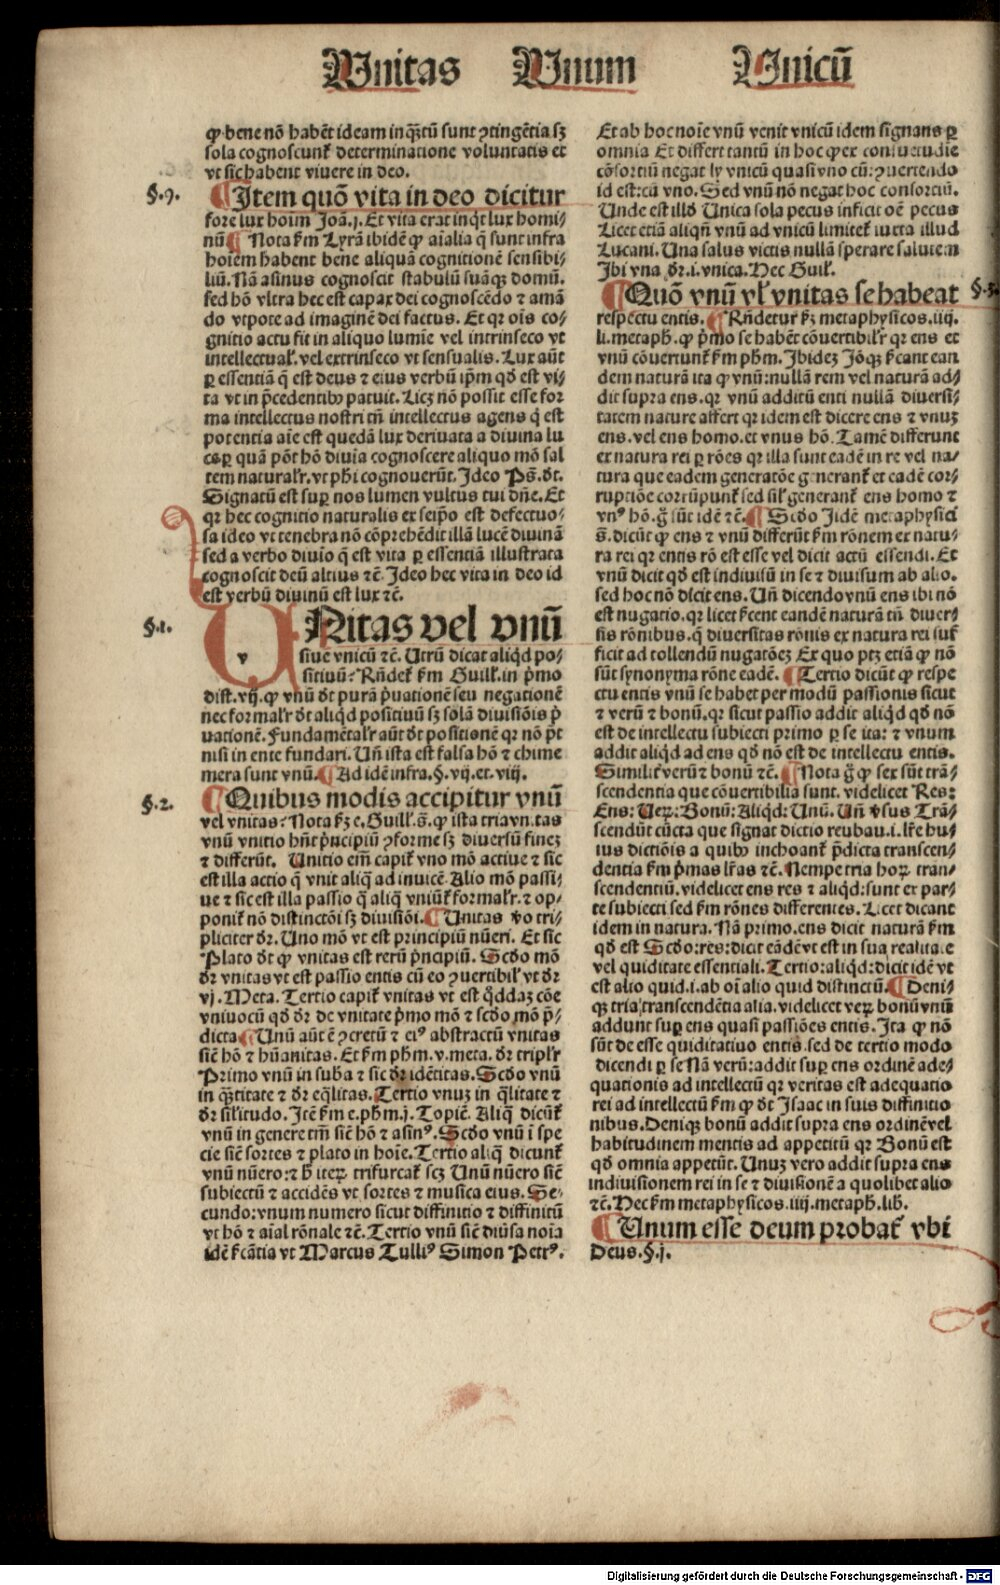 Vnitas Vnum Vnicū
ꝙ bene nō habēt ideam inq̄ꝫtū sunt ꝯtingētia sꝫ
sola cognoscunt̄ determinatione voluntatis et
vt sic habent viuere in deo.
§.9.
¶Item quō vita in deo dicitur
fore lux hoīm Joā.j. Et vita erat in q̇t lux homi⸗
nū¶ Nota ẜm Lyrā ibidē ꝙ aīalia q̄ sunt infra
hoīem habent bene aliquā cognitionē sensibi⸗
liū. Nā asinus cognoscit stabulū suāqꝫ domū.
sed hō vltra hec est capax dei cognoscēdo ⁊ amā
do vtpote ad imaginē dei factus. Et qꝛ oīs co⸗
gnitio actu fit in aliquo lumīe vel intrinseco vt
intellectual̓. vel extrinseco vt sensualis. Lux aūt
ꝑ essentiā q̄ est deus ⁊ eius verbū ip̄m qd̄ est vi⸗
ta vt in p̄cedentibꝰ patuit. Licꝫ nō possit esse for
ma intellectus nostri tn̄ intellectus agens q̄ est
potentia aīe est quedā lux deriuata a diuina lu
ce ꝑ quā pōt hō diuīa cognoscere aliquo mō sal
tem natural̓r. vt ph̄i cognouerūt. Ideo Ps̄. dt.
Signatū est suꝑ nos lumen vultus tui dn̄e. Et
qꝛ hec cognitio naturalis ex seip̄o est defectuo⸗
sa ideo vt tenebra nō cōp̄rehēdit illā lucē diuinā
sed a verbo diuīo q̄ est vita ꝑ essentiā illustrata
cognoscit deū altius ⁊c̄. Ideo hec vita in deo id
est verbū diuinū est lux ⁊c̄.
§.1.
v
VNitas vel vnū
siue vnicū ⁊c̄. Utrū dicat aliqd po⸗
sitiuū? Rn̄det̄ ẜm Guill̓. in p̄mo
dist. vij. ꝙ vnū dt purā p̄uationē seu negationē
nec formal̓r dt aliqd positiuū sꝫ solā diuisiōis p̄
uationē. Fundamētal̓r aūt dt positionē qꝛ nō p̄t
nisi in ente fundari. Un̄ ista est falsa hō ⁊ chime
mera sunt vnū.¶Ad idē infra.§.vij.et.viij.
§.2.
¶Quibus modis accipitur vnū
vel vnitas? Nota ẜꝫ e. Guill̓. s̄. ꝙ ista tria vnitas
vnū vnitio hn̄t p̄ncipiū ꝯforme sꝫ diuersū fineꝫ
⁊ differūt. Unitio em̄ capit̄ vno mō actiue ⁊ sic
est illa actio q̄ vnit aliq̄ ad inuicē. Alio mō passi⸗
ue ⁊ sic est illa passio q̄ aliq̄ vniūt̄ formal̓r. ⁊ op⸗
ponit̄ nō distinctōi sꝫ diuisiōi.¶Unitas v̄o tri⸗
pliciter dr̄. Uno mō vt est principiū nūeri. Et sic
Plato dt ꝙ vnitas est rerū p̄ncipiū. Scd̄o mō
dr̄ vnitas vt est passio entis cū eo ꝯuertibil̓ vt dr̄
vj. Meta. Tertio capit̄ vnitas vt est q̄ddaꝫ cōe
vniuocū qd̄ dr̄ de vnitate p̄mo mō ⁊ scd̄o mō p̄⸗
dicta¶Unū aūt ē ꝯcretū ⁊ eiꝰ abstractū vnitas
sic̄ hō ⁊ hūanitas. Et ẜm ph̄m. v. meta. dr̄ tripl̓r
Primo vnū in suba ⁊ sic dr̄ idētitas. Scd̄o vnū
in q̄ꝫtitate ⁊ dr̄ eq̄litas. Tertio vnuꝫ in q̄litate ⁊
dr̄ sil̓itudo. Itē ẜm e. ph̄m. j. Topic̄. Aliq̄ dicūt̄
vnū in genere tm̄ sic̄ hō ⁊ asinꝰ. Scd̄o vnū ī spe
cie sic̄ sortes ⁊ plato in hoīe. Tertio aliq̄ dicunt̄
vnū nūero: ⁊ ħ iteꝝ trifurcat̄ scꝫ Unū nūero sic̄
subiectū ⁊ accidēs vt sortes ⁊ musica eius. Se⸗
cundo: vnum numero sicut diffinitio ⁊ diffinitū
vt hō ⁊ aīal rōnale ⁊c̄. Tertio vnū sic̄ diūsa noīa
idē ẜcātia vt Marcus Tulliꝰ Simon Petrꝰ.
Et ab hoc noīe vnū venit vnicū idem signans ꝑ
omnia Et differt tantū in hoc ꝙ ex consuetudīe
cōsortiū negat ly vnicū quasi vno cū: ꝯuertendo
id est: cū vno. Sed vnū nō negat hoc consortiū.
Unde est illd̄ Unica sola pecus inficit oē pecus
Licet etiā aliqn̄ vnū ad vnicū limitet̄ iuxta illud
Lucani. Una salus victis nullā sperare salutem
Ibi vna dr̄. i. vnica. Hec Guil̓.
§.3.
¶Quō vnū vl̓ vnitas se habeat
respectu entis.¶Rn̄detur ẜꝫ metaphysicos. iiij.
li. metaph̄. ꝙ p̄mo se habēt cōuertibil̓r qꝛ ens et
vnū cōuertunt̄ ẜm ph̄m. Ibideꝫ Jōqꝫ ẜcant ean
dem naturā ita ꝙ vnū: nullā rem vel naturā ad⸗
dit supra ens. qꝛ vnū additū enti nullā diuersi⸗
tatem nature affert qꝛ idem est dicere ens ⁊ vnuꝫ
ens. vel ens homo. et vnus hō. Tamē differunt
ex natura rei ꝑ rōes qꝛ illa sunt eadē in re vel na⸗
tura que eadem generatōe generant̄ et eadē cor⸗
ruptiōe corrūpunt̄ sed sil̓ generant̄ ens homo ⁊
vnꝰ hō. g̊ sūt idē ⁊c̄.¶Scd̄o Iidē metaphysici
s̄. dicūt ꝙ ens ⁊ vnū differūt ẜm rōnem ex natu⸗
ra rei qꝛ entis rō est esse vel dicit actū essendi. Et
vnū dicit qd̄ est indiuisū in se ⁊ diuisum ab alio.
sed hoc nō dicit ens. Un̄ dicendo vnū ens ibi nō
est nugatio. qꝛ licet ẜcent eandē naturā tn̄ diuer⸗
sis rōnibus. q̄ diuersitas rōnis ex natura rei suf
ficit ad tollendū nugatōeꝫ Ex quo ptꝫ etiā ꝙ nō
sūt synonyma rōne eadē.¶Tertio dicūt ꝙ respe
ctu entis vnū se habet per modū passionis sicut
⁊ verū ⁊ bonū. qꝛ sicut passio addit aliqd qd̄ nō
est de intellectu subiecti primo ꝑ se ita: ⁊ vnum
addit aliqd ad ens qd̄ nō est de intellectu entis.
Similit̄ verū ⁊ bonū ⁊c̄.¶Nota g̊ ꝙ sex sūt trā⸗
scendentia que cōuertibilia sunt. videlicet Res:
Ens: Ueꝝ: Bonū: Aliqd: Unū. Un̄ v̓sus Trā⸗
scendūt cūcta que signat dictio reubau. i. lr̄e hu⸗
ius dictiōis a quibꝰ inchoant̄ p̄dicta transcen⸗
dentia ẜm p̄mas lr̄as ⁊c̄. Nempe tria hoꝝ tran⸗
scendentiū. videlicet ens res ⁊ aliqd: sunt ex par⸗
te subiecti sed ẜm rōnes differentes. Licet dicant
idem in natura. Nā primo. ens dicit naturā ẜm
qd̄ est Scd̄o: res: dicit eādē vt est in sua realitate
vel quiditate essentiali. Tertio: aliqd: dicit idē vt
est alio quid. i. ab oī alio quid distinctū.¶Deni⸗
qꝫ tria transcendētia alia. videlicet veꝝ bonū vnū
addunt suꝑ ens quasi passiōes entis. Ita ꝙ nō
sūt de esse quiditatiuo entis. sed de tertio modo
dicendi ꝑ se Nā verū: addit suꝑ ens ordinē ade⸗
quationis ad intellectū qꝛ veritas est adequatio
rei ad intellectū ẜm ꝙ dt Isaac in suis diffinitio
nibus. Deniqꝫ bonū addit supra ens ordinē vel
habitudinem mentis ad appetitū qꝛ Bonū est
qd̄ omnia appetūt. Unuꝫ vero addit supra ens
indiuisionem rei in se ⁊ diuisionē a quolibet alio
⁊c̄. Hec ẜm metaphysicos. iiij. metaph̄. lib̄.
¶Unum esse deum probat̄ vbi
Deus.§.j.
Digitalisierung gefördert durch die Deutsche Forschungsgemeinschaft - DFG